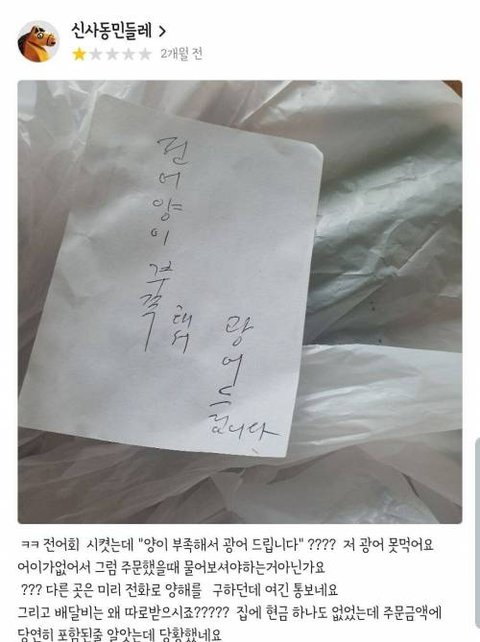 신사동민들레 >
2개월 전
전어양이 부족
해서
광어드립니다
ㅋㅋ 전어회 시켯는데 "양이 부족해서 광어 드립니다" ???? 저 광어 못먹어요
어이가없어서 그럼 주문했을때 물어보셔야하는거아닌가요
??? 다른 곳은 미리 전화로 양해를 구하던데 여긴 통보네요
그리고 배달비는 왜 따로받으시죠????? 집에 현금 하나도 없었는데 주문금액에
당연히 포함된줄 알앗는데 당황했네요